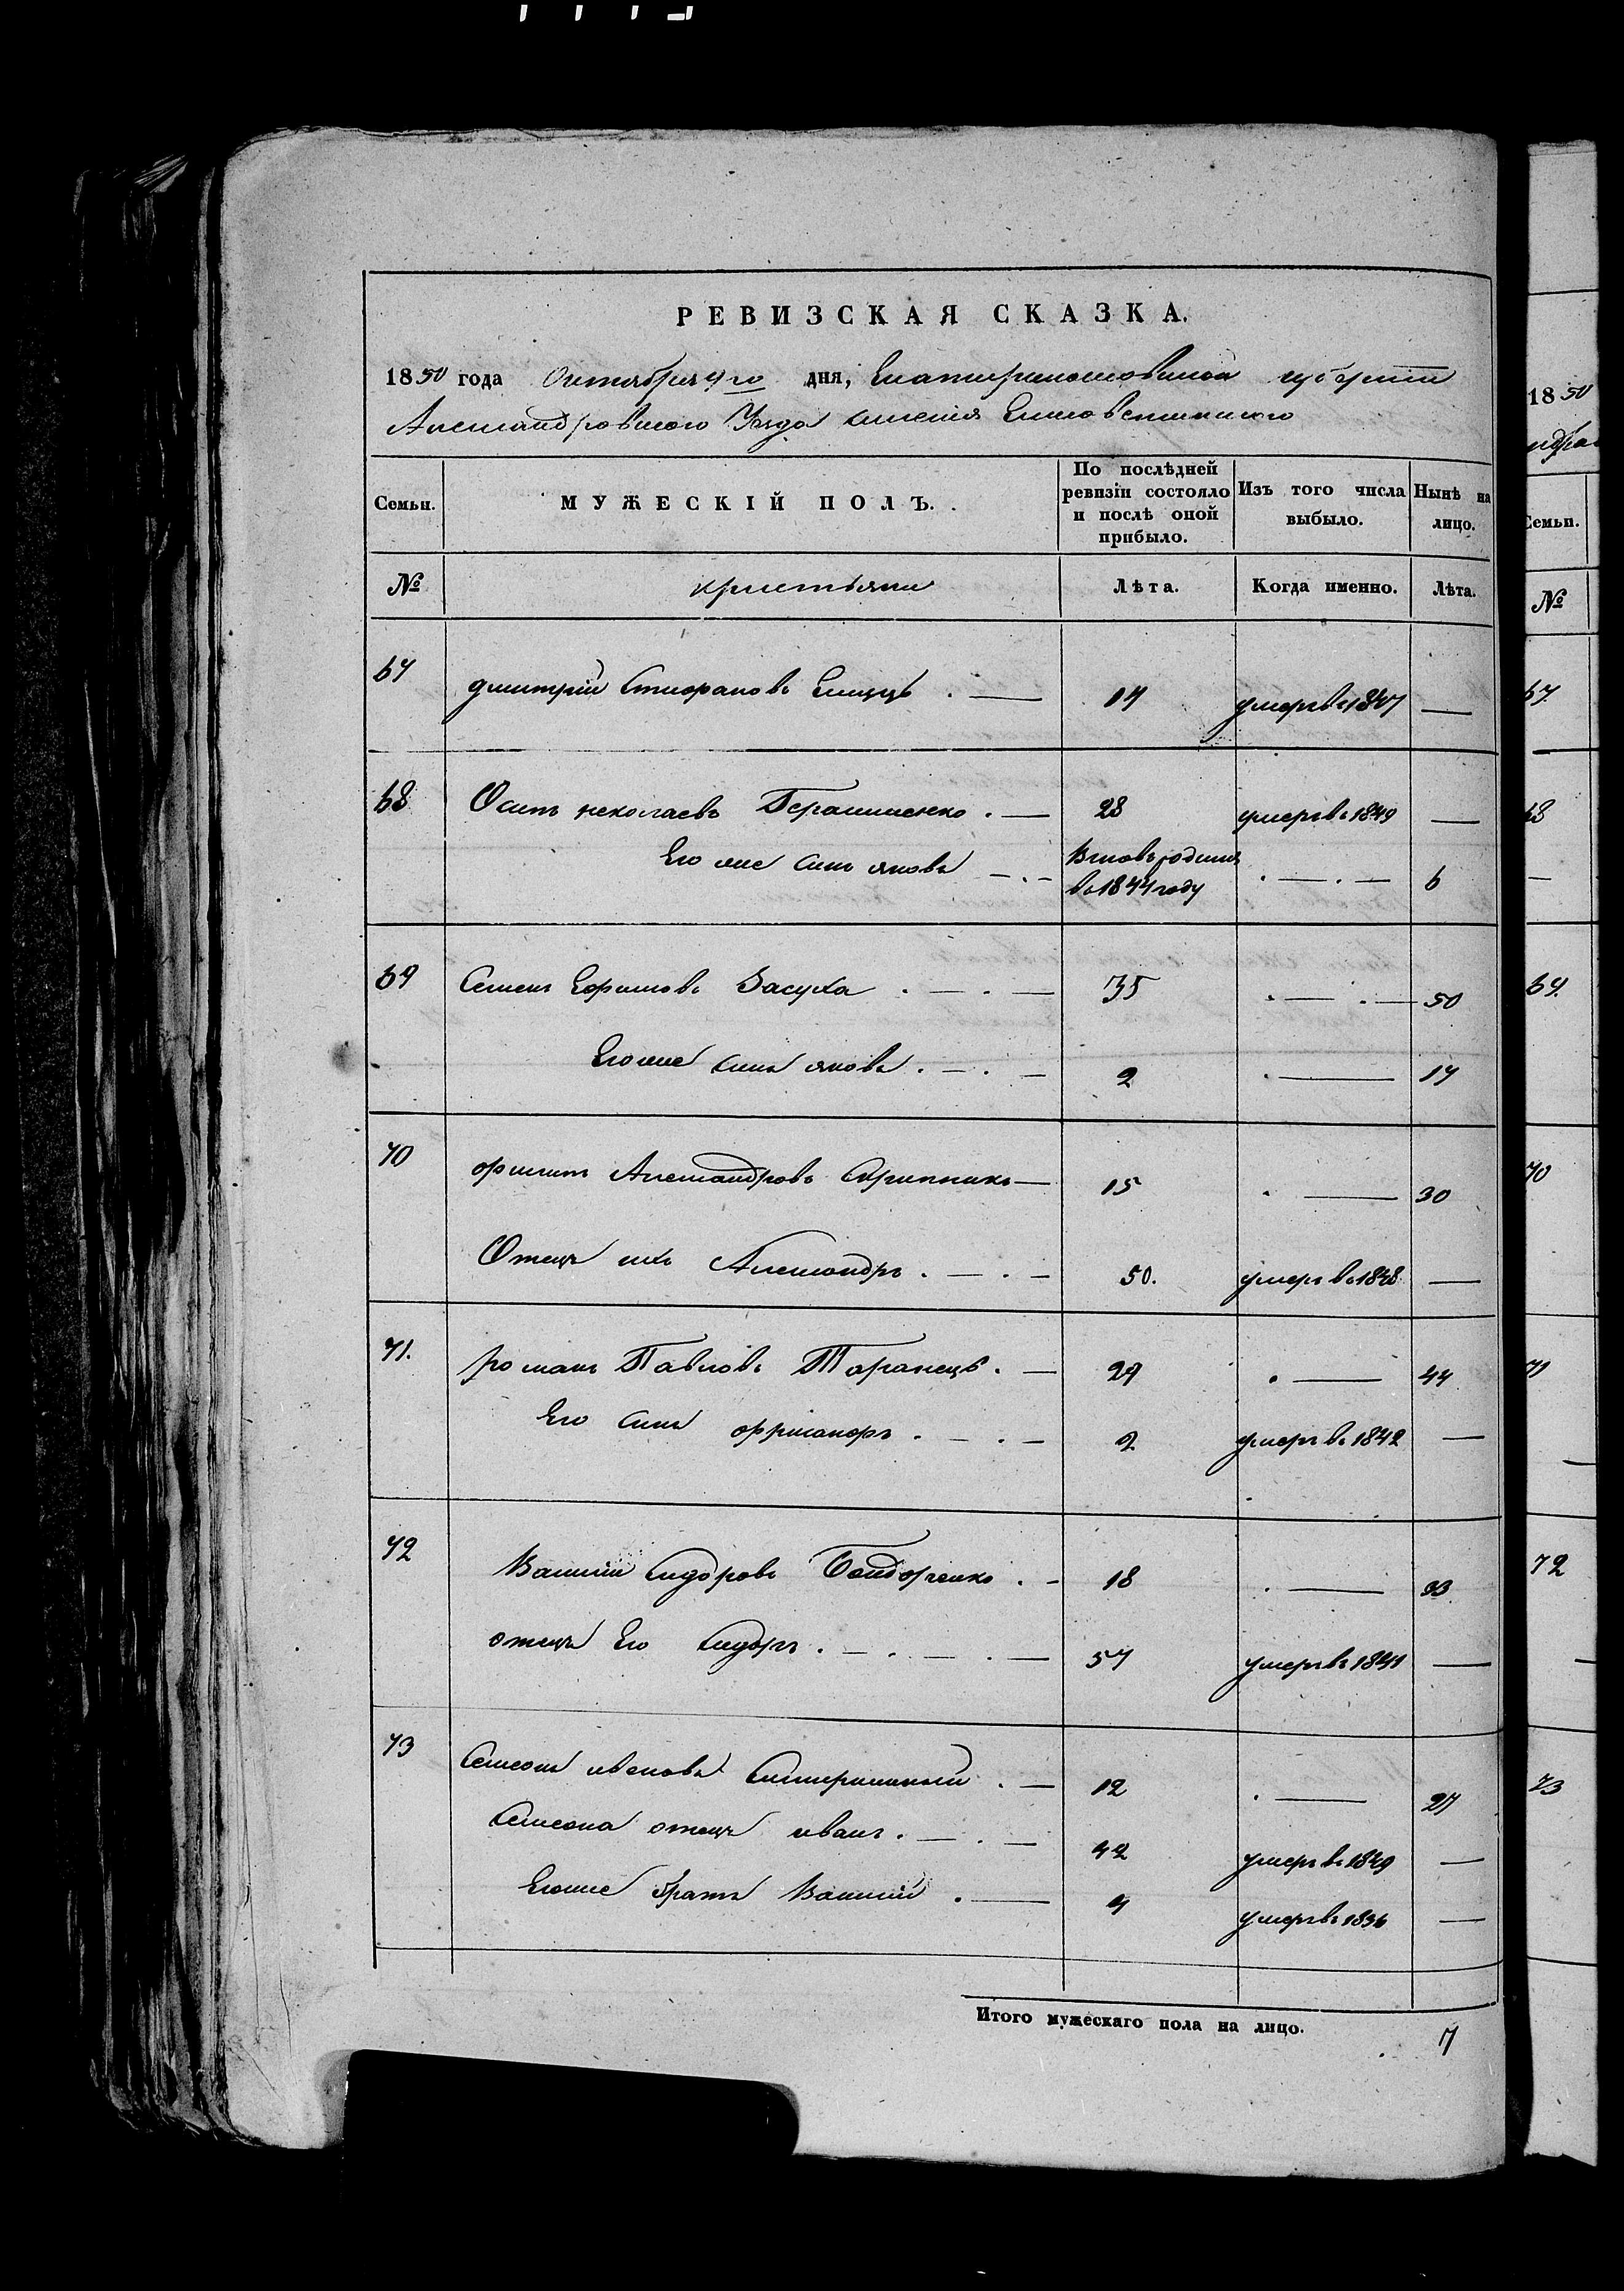 РЕВИЗСКАЯ СКАЗКА.
1850 года Октября 4го дня, Екатеринославской губернии
Александровского Уезда имения
Семьи. МУЖЕСКІЙ ПОЛЪ. По послѣдней ревизіи состояло и послѣ оной прибыло. Изъ того числа выбыло. Нынѣ на лицо.
№ крестьяни Лѣта. Когда именно. Лѣта.
67 дмитрій Стефановъ 14 умеръ въ 1847 —
68 Осипъ неколаевъ Герашченко 28 умеръ въ 1849 —
Его же синъ яковъ Вновь родился въ 1844 году 6
69 Семенъ Ефимовъ Засуха 35 50
Его же синъ яковъ 2 17
70 филипъ Александровъ Скрипникъ 15 30
Отецъ ихъ Александръ 50. умеръ въ 1848 —
71. романъ Павловъ Таранецъ 29 44
Его синъ 2 умеръ въ 1842 —
72 Василій Сидоровъ Бондоренко 18 33
отецъ Его Сидоръ 57 умеръ въ 1841 —
73 Семеонъ ивановъ 12 27
Семеона отецъ иванъ 42 умеръ въ 1849 —
Его же братъ Василій 4 умеръ въ 1836 —
Итого мужескаго пола на лицо. 7
1850
Семьи.
№
67
68
69.
70
71
72
73